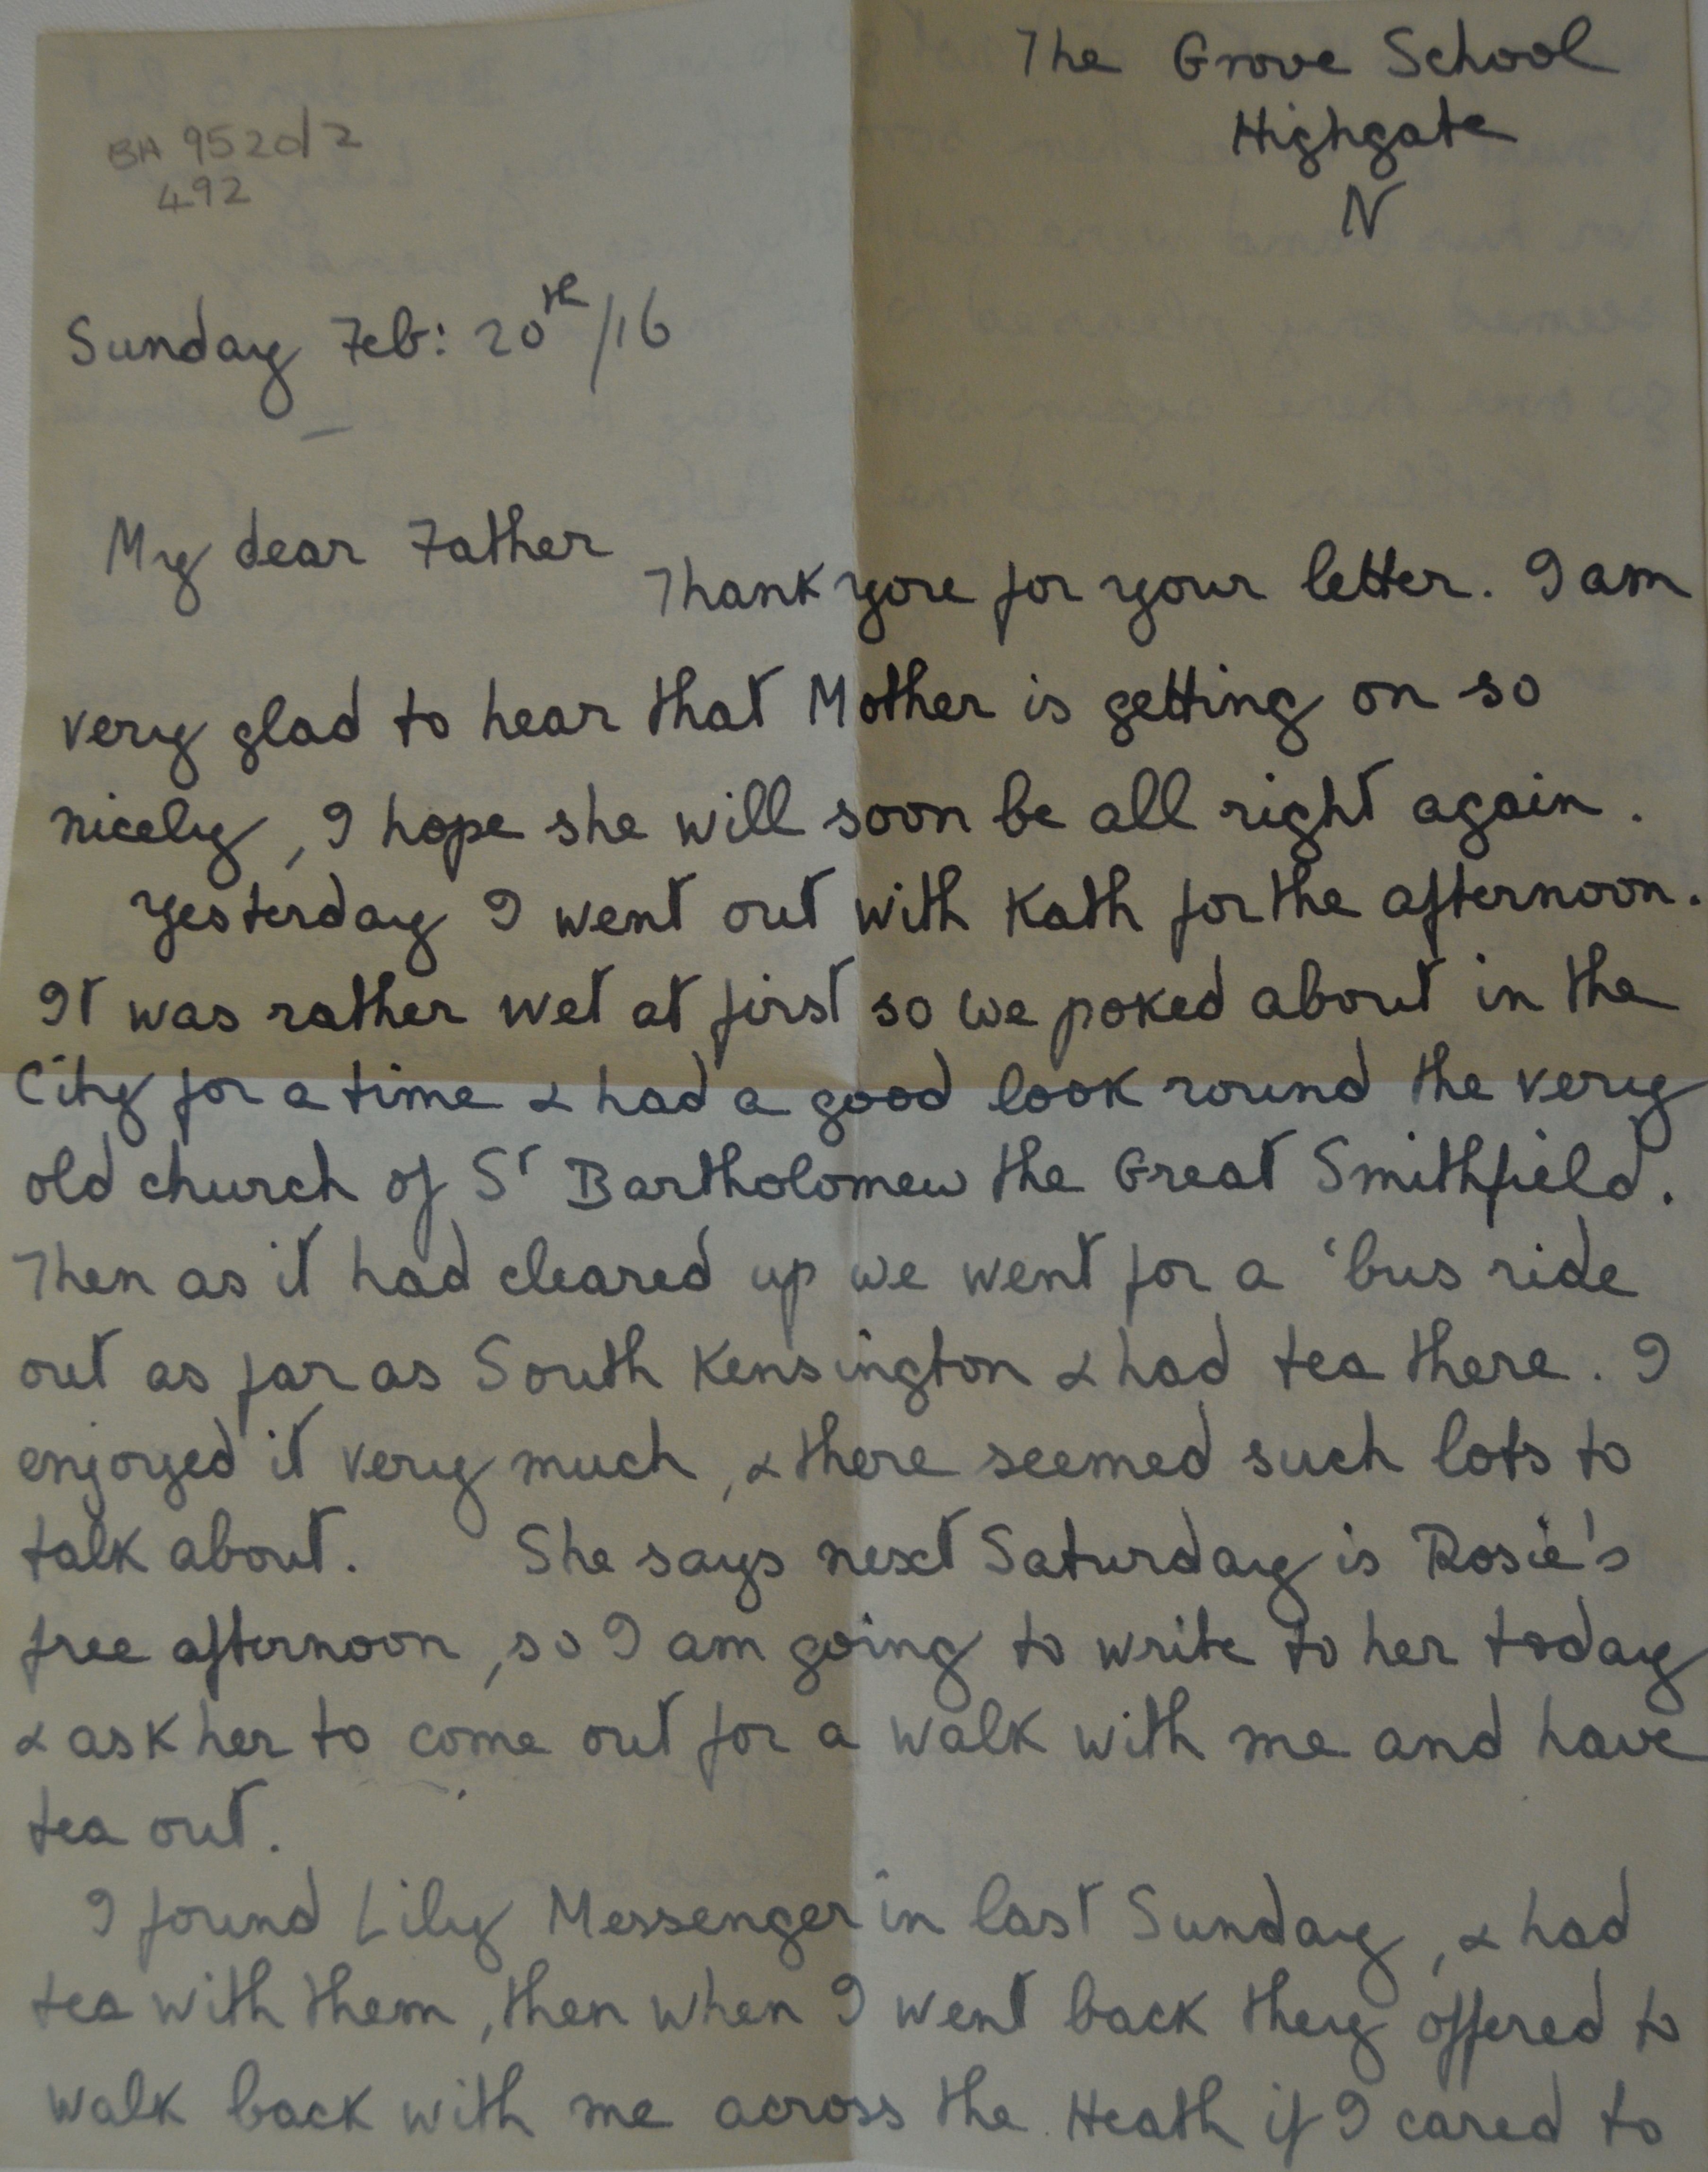 The Grove School
Highgate
N
BA 9520/2
492
Sunday Feb: 20th/16
My dear Father
Thank you for your letter. I am
very glad to hear that Mother is getting on so
nicely, I hope she will soon be all right again.
Yesterday I went out with Kath for the afternoon.
It was rather wet at first so we poked about in the
City for a time & had a good look round the very
old church of St Bartholomew the Great Smithfield.
Then as it had cleared up we went for a 'bus ride
out as far as South Kensington & had tea there. I
enjoyed it very much, & there seemed such lots to
talk about. She says next Saturday is Rosie's
free afternoon, so I am going to write to her today
& ask her to come out for a walk with me and have
tea out.
I found Lily Messenger in last Sunday, & had
tea with them, then when I went back they offered to
walk back with me across the Heath if I cared to